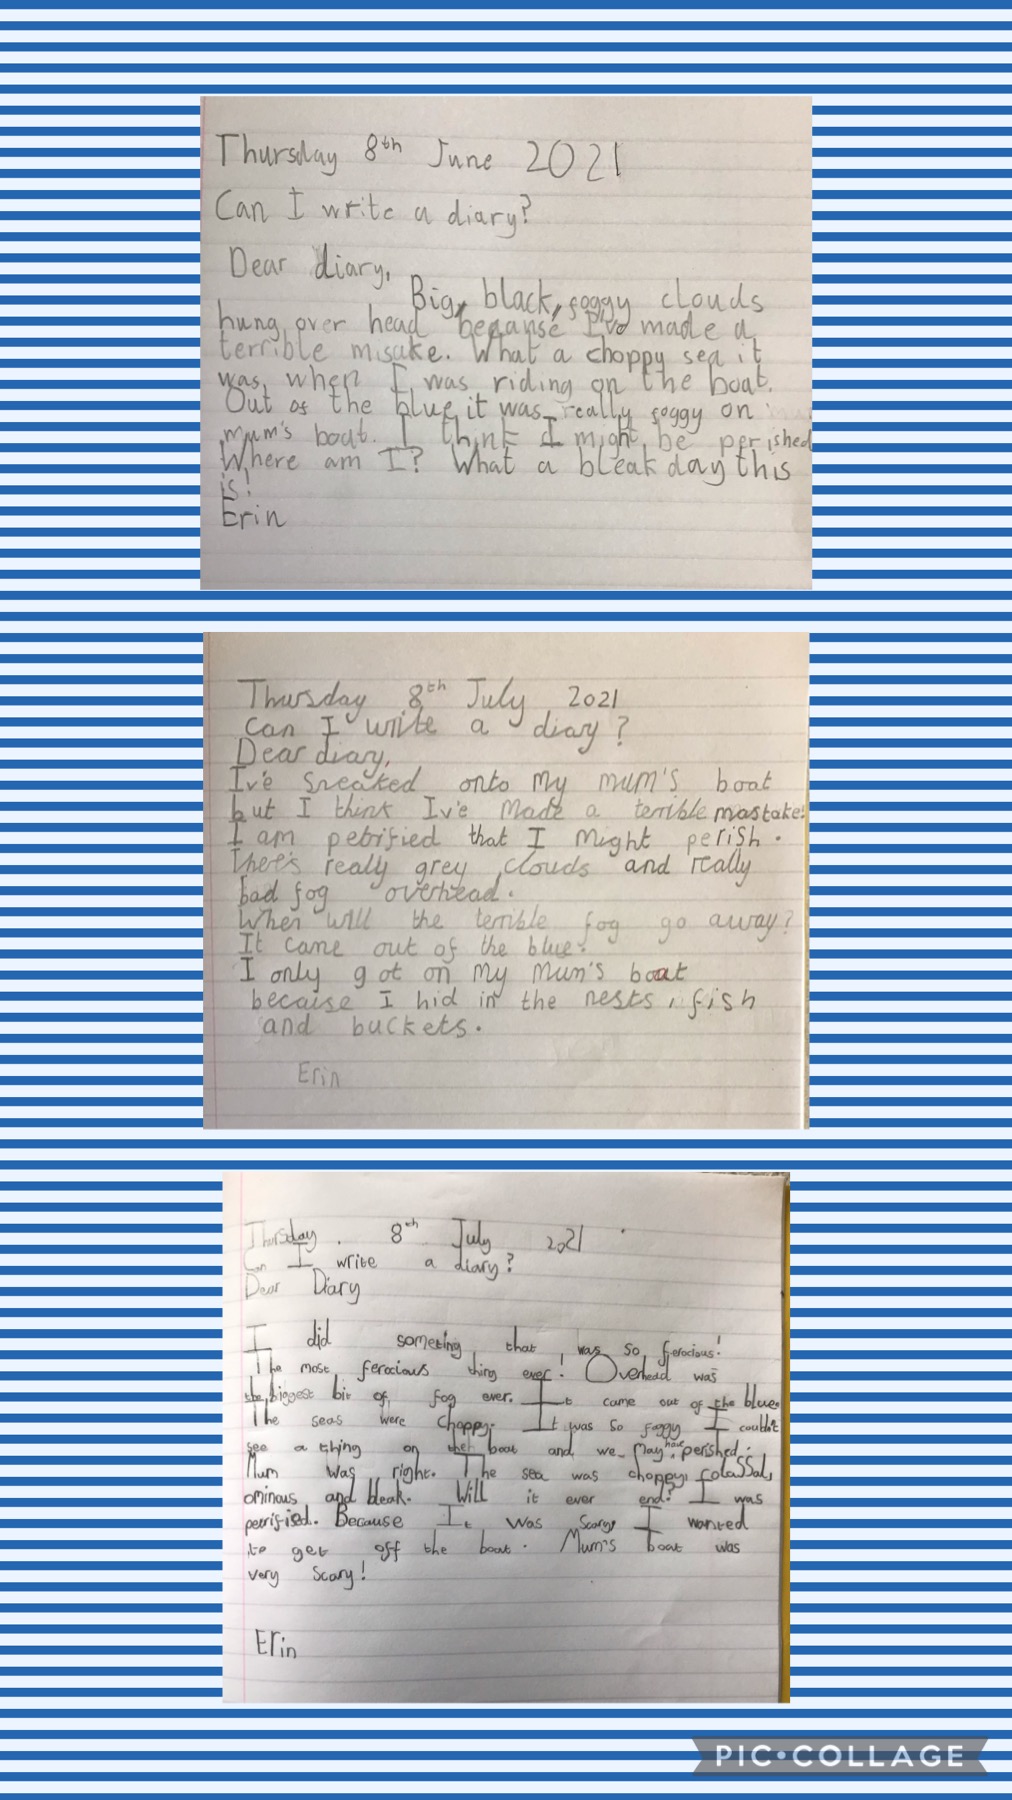 Thursday 8th June 2021
Can I write a diary?
Dear diary,
Big, black, foggy clouds
hung over head beganse I've made a
terrible misake. What a choppy sea it
was, when I was riding on the boat.
Out of the blue it was really foggy on
mum's boat. I think I might be perished
Where am I? What a bleak day this
is!
Erin
Thursday 8th July 2021
Can I write a diary?
Dear diary,
Iv'e sneaked onto my mum's boat
but I think Iv'e made a terrible mastake.
I am petrified that I might perish.
There's really grey clouds and really
bad fog overhead.
When will the terrible fog go away?
It came out of the blue.
I only got on my mum's boat
because I hid in the nests, fish
and buckets.
Erin
Thursday 8th July 2021
Can I write a diary?
Dear Diary
I did someting that was so ferocious!
The most ferocious thing ever! Overhead was
the biggest bit of fog ever. It came out of the blue.
The seas were choppy. It was so foggy I couldn't
see a thing on the boat and we may have perished.
Mum was right. The sea was choppy, colassal,
ominous and bleak. Will it ever end? I was
petrified. Because It was scary I wanted
to get off the boat. Mum's boat was
very scary!
Erin
PIC•COLLAGE